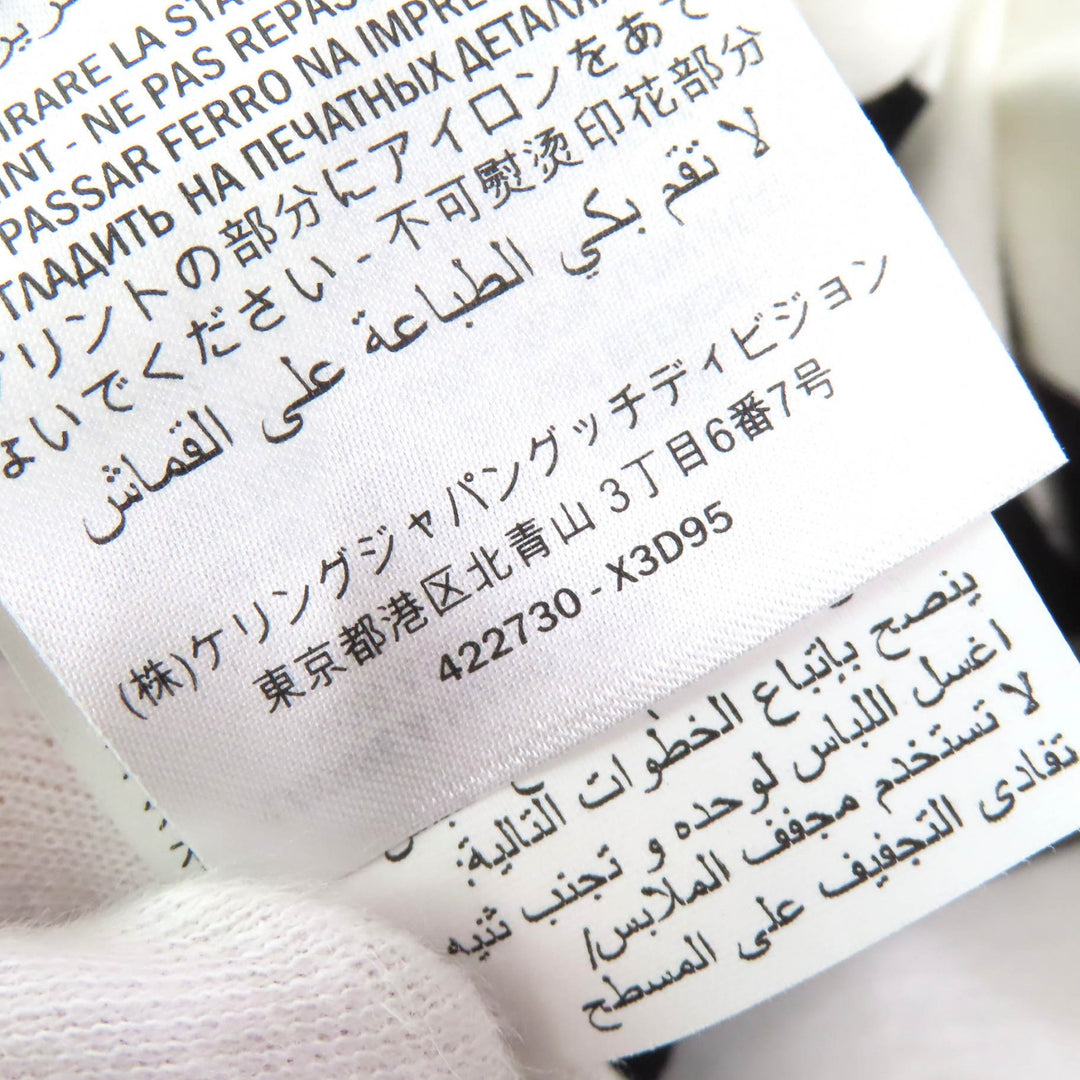 LA STA
NE PAS REPAS
PASSAR FERRO NA IMPRE
ГЛАДИТЬ НА ПЕЧАТНЫХ ДЕТАЛЯ
プリントの部分にアイロンをあて
ないでください - 不可熨烫印花部分
لا تقم بكي الطباعة على القماش
(株)ケリングジャパングッチディビジョン
東京都港区北青山 3丁目6番7号
422730 - X3D95
ينصح بإتباع الخطوات التالية:
اغسل اللباس لوحده و تجنب ثنيه
لا تستخدم مجفف الملابس/
تفادى التجفيف على المسطح